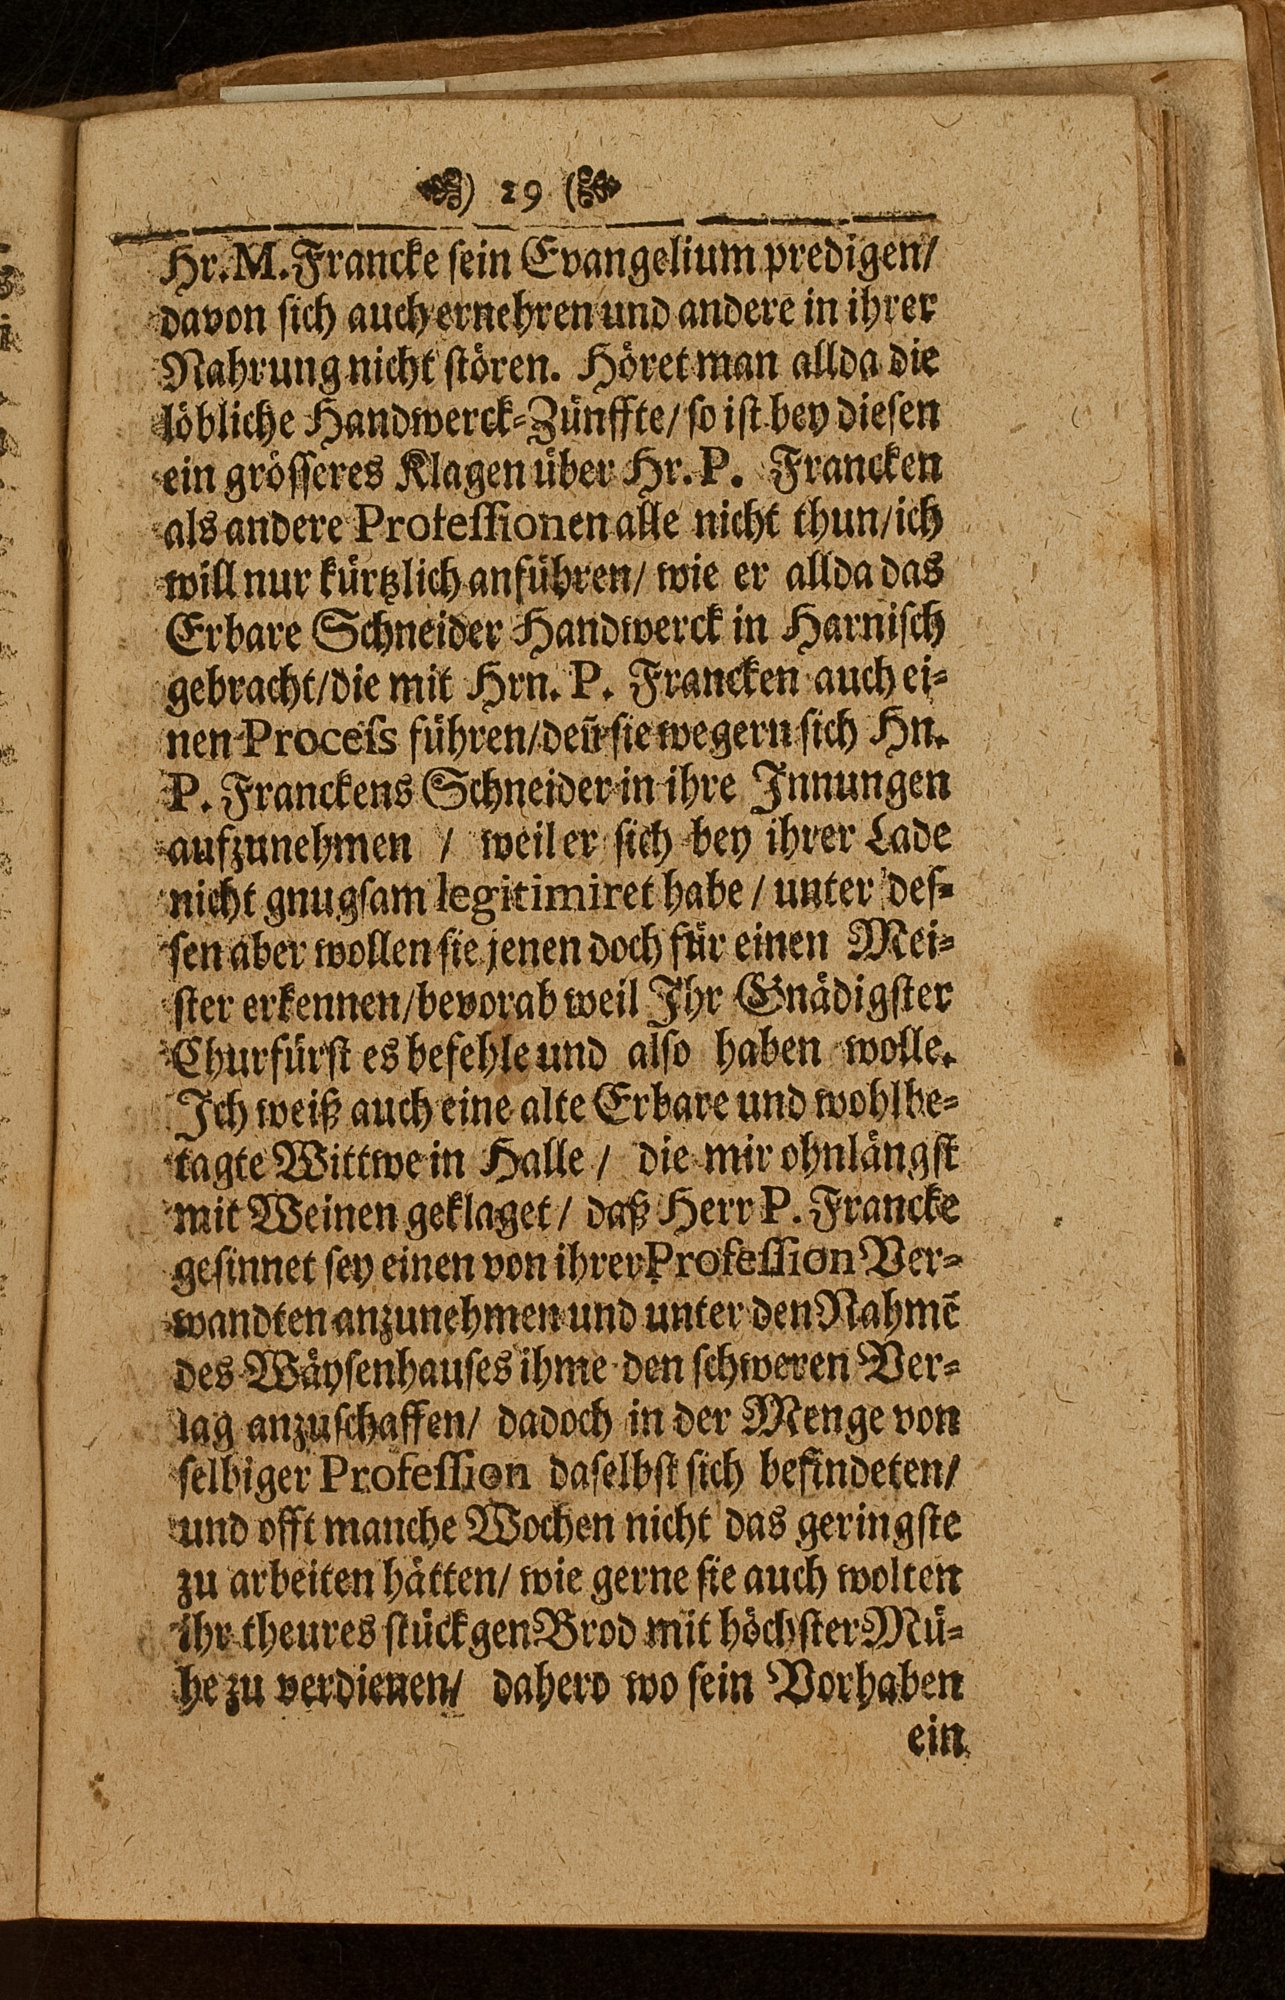 ) 29 (
Hr. M. Francke sein Evangelium predigen/
davon sich auch ernehren und andere in ihrer
Nahrung nicht stören. Höret man allda die
löbliche Handwerck-Zünffte/ so ist bey diesen
ein grösseres Klagen über Hr. P. Francken
als andere Professionen alle nicht thun/ ich
will nur kürtzlich anführen/ wie er allda das
Erbare Schneider Handwerck in Harnisch
gebracht/ die mit Hrn. P. Francken auch ei-
nen Process führen/ deñ sie wegern sich Hn.
P. Franckens Schneider in ihre Innungen
aufzunehmen / weil er sich bey ihrer Lade
nicht gnugsam legitimiret habe / unter des-
sen aber wollen sie jenen doch für einen Mei-
ster erkennen/ bevorab weil Ihr Gnädigster
Churfürst es befehle und also haben wolle.
Ich weiß auch eine alte Erbare und wohlbe-
tagte Wittwe in Halle / die mir ohnlängst
mit Weinen geklaget / daß Herr P. Francke
gesinnet sey einen von ihrer Profession Ver-
wandten anzunehmen und unter den Nahmē
des Wäysenhauses ihme den schweren Ver-
lag anzuschaffen/ dadoch in der Menge von
selbiger Profession daselbst sich befindeten/
und offt manche Wochen nicht das geringste
zu arbeiten hätten/ wie gerne sie auch wolten
ihr theures stückgen Brod mit höchster Mü-
he zu verdienen/ dahero wo sein Vorhaben
ein